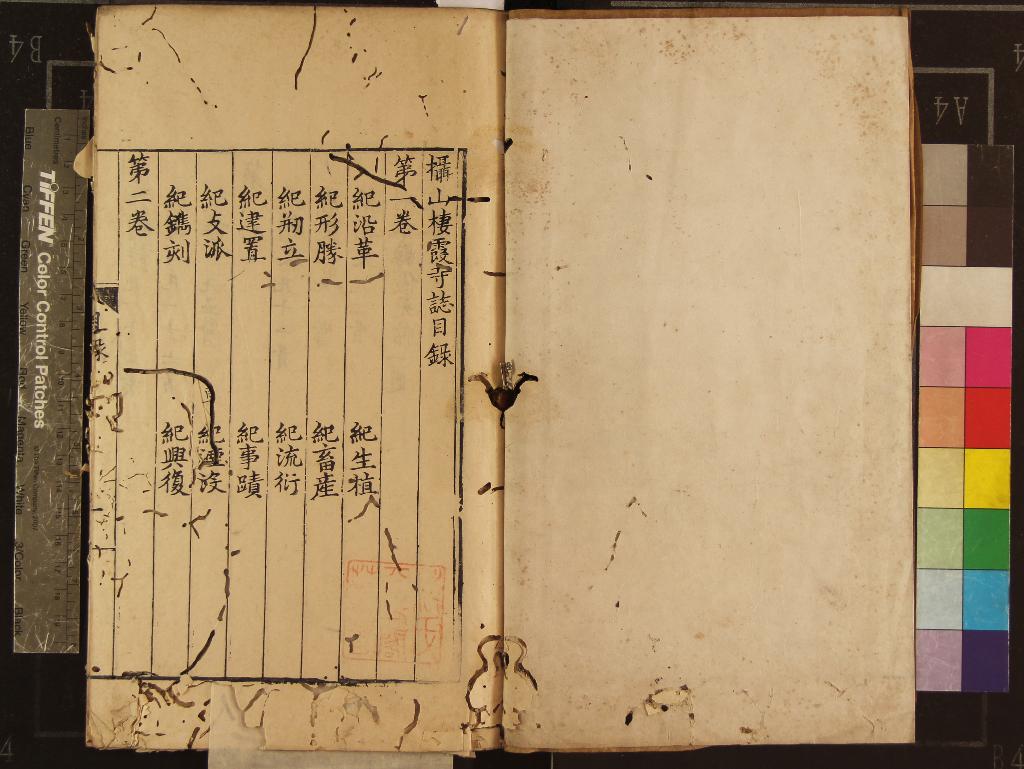 攝山棲霞寺誌目録
第一卷
紀沿革
紀生植
紀形勝
紀畜産
紀剏立
紀流衍
紀建置
紀事蹟
紀支派
紀湮沒
紀鐫刻
紀興復
第二卷
目録
TIFFEN Color Control Patches
Centimetres
Blue
Cyan
Green
Yellow
Red
Magenta
White
3/Color
Black
B4
A4